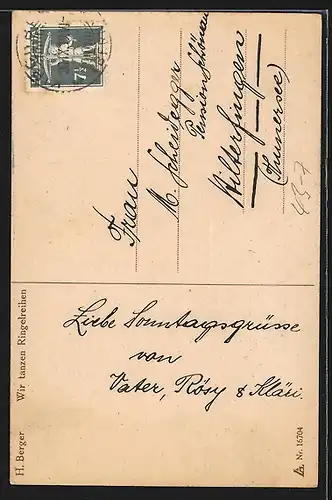 7½
Frau
M. Scheidegger
Pension Schönau
Hilterfingen
(Thunersee)
Liebe Sonntagsgrüsse
von
Vater, Rösy & Kläri.
H. Berger Wir tanzen Ringelreihen
Nr. 16704